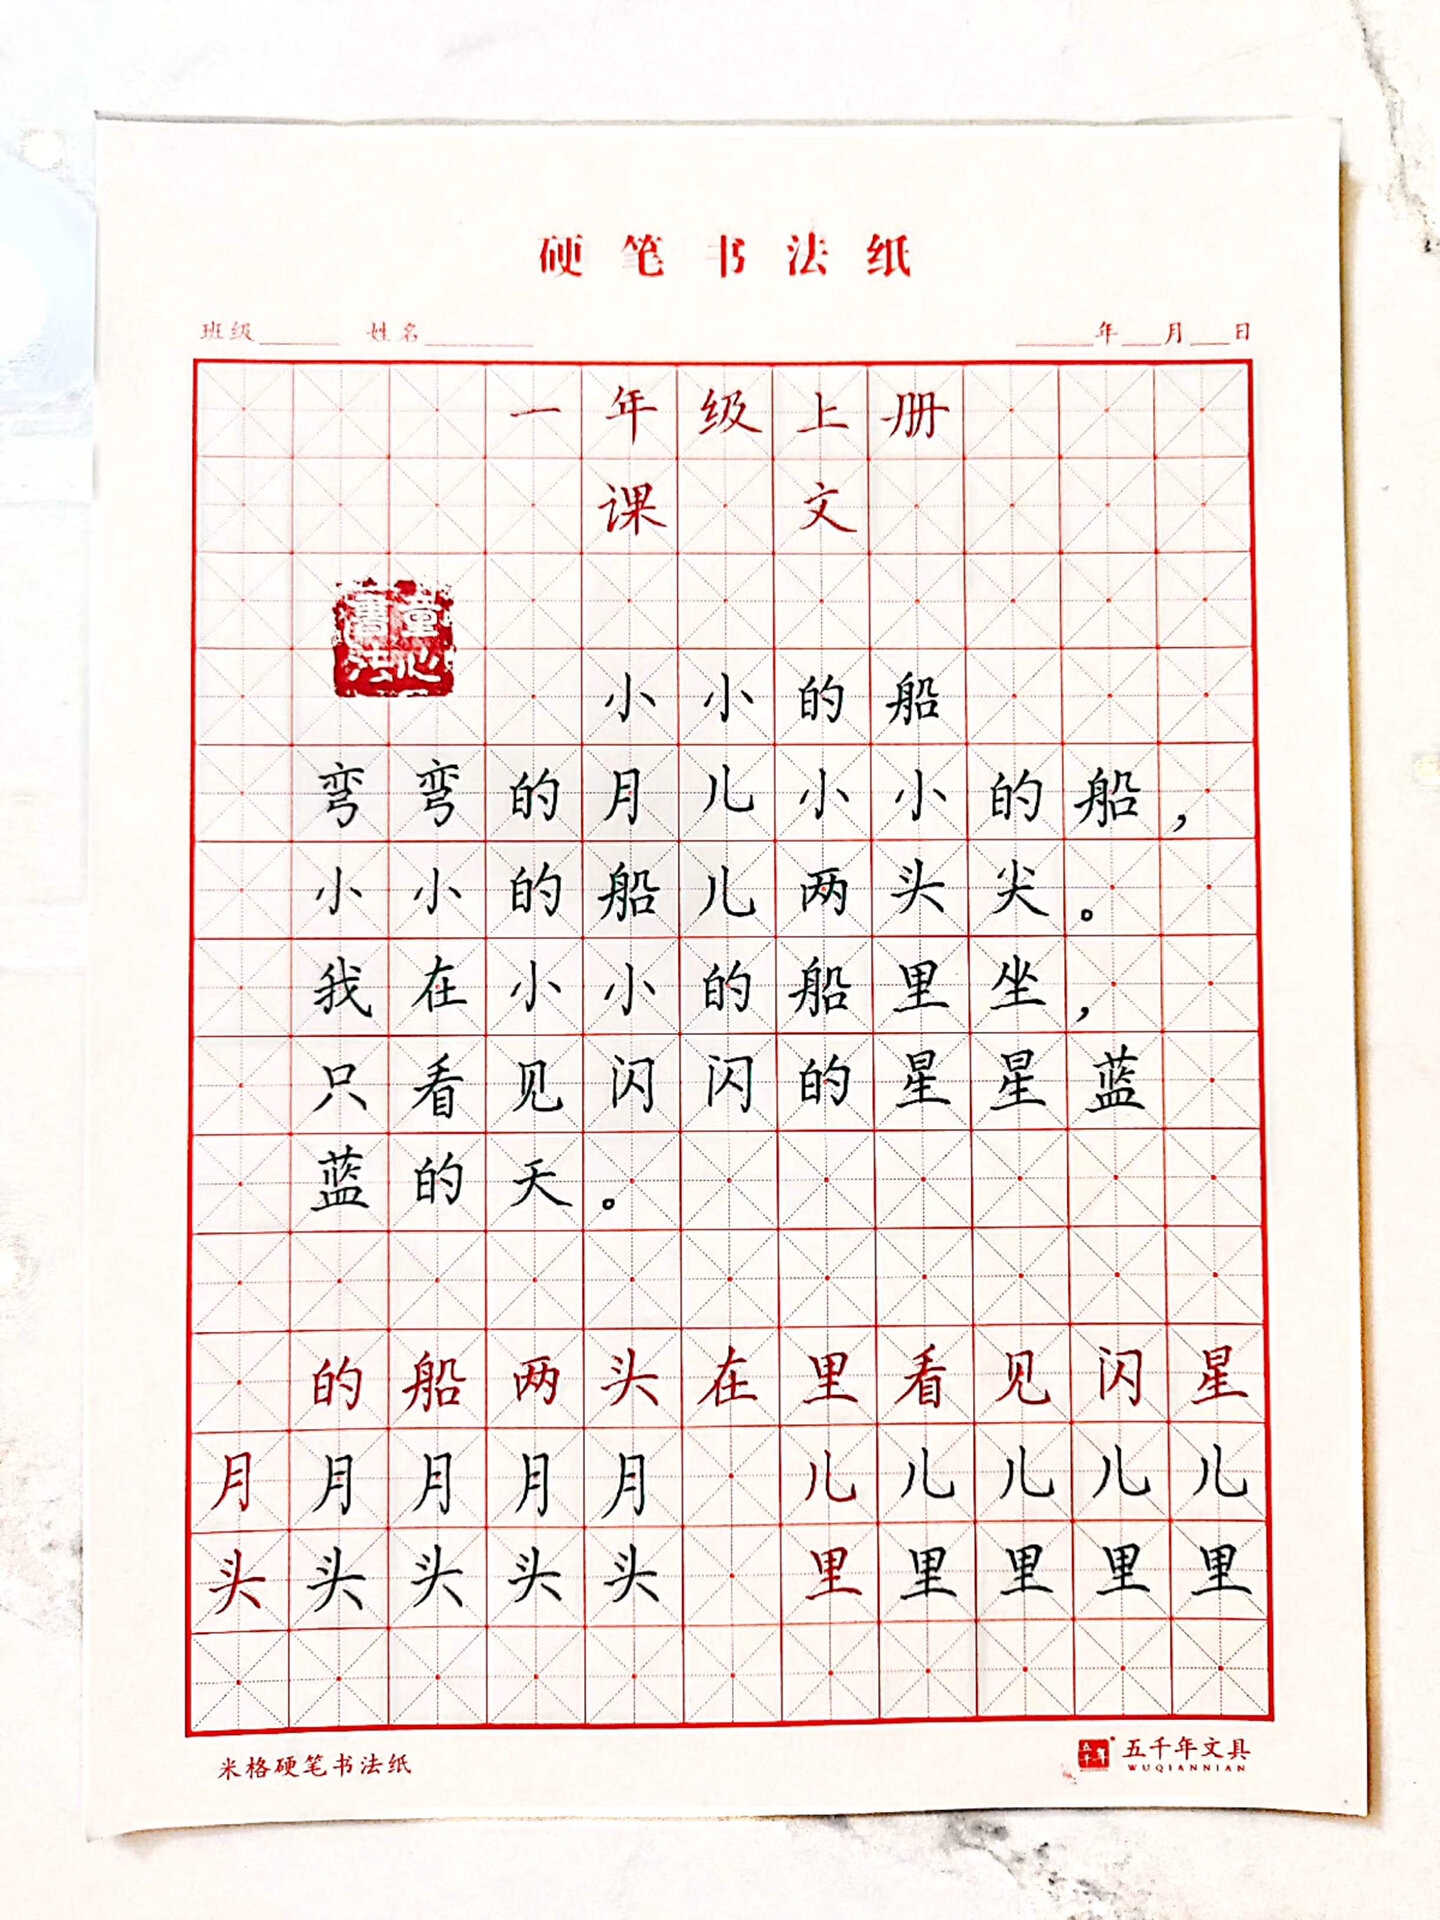 硬笔书法纸
班级 姓名 年 月 日
一年级上册
课文
童心書法
小小的船
弯弯的月儿小小的船，
小小的船儿两头尖。
我在小小的船里坐，
只看见闪闪的星星蓝
蓝的天。
的船两头在里看见闪星
月月月月月 儿儿儿儿儿
头头头头头 里里里里里
米格硬笔书法纸
五千年 五千年文具
WUQIANNIAN